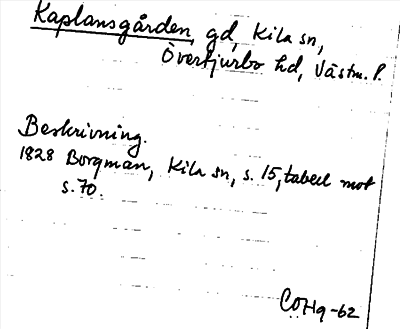 Kaplansgården, gd, Kila sn,
Övertjurbo hd, Västm. l.
Beskrivning.
1828 Borgman, Kila sn, s. 15, tabell mot
s. 70.
COHq-62